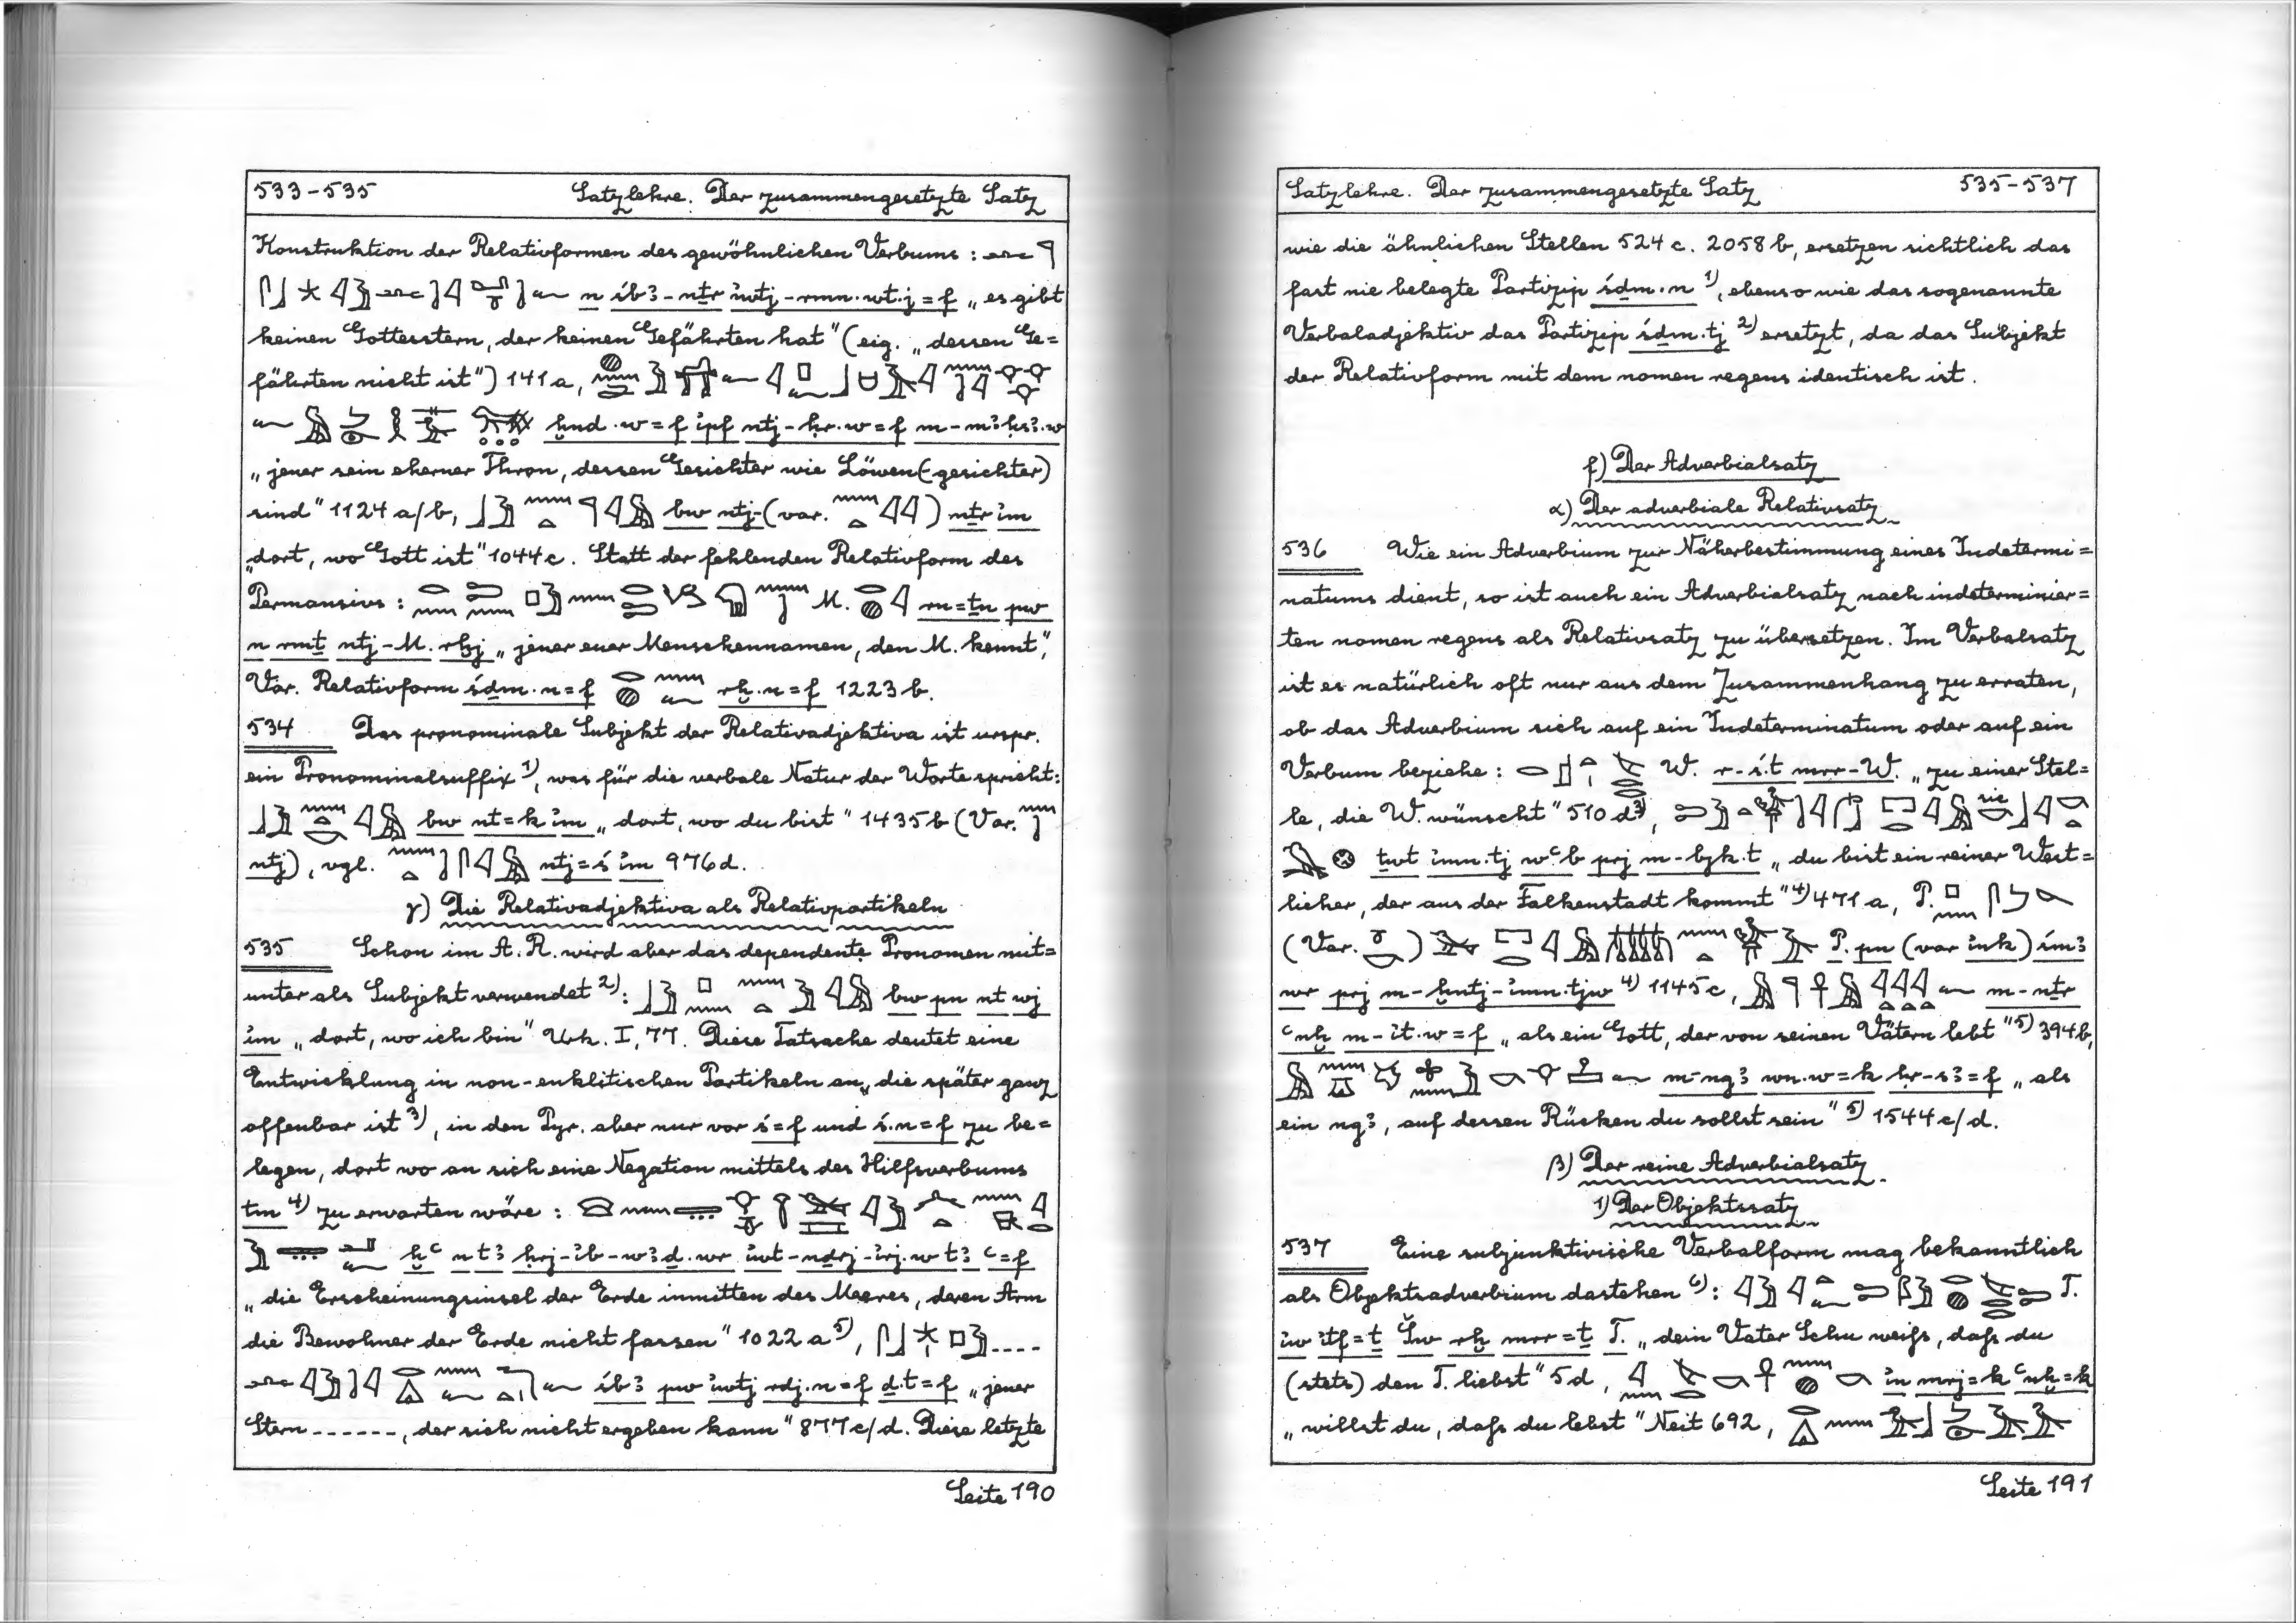 533-535 Satzlehre. Der zusammengesetzte Satz
Konstruktion der Relativformen des gewöhnlichen Verbums :
n śbꜣ-nṯr ı͗wtj-rmn.wt.j=f „es gibt
keinen Gottesstern, der keinen Gefährten hat" (eig. „dessen Ge=
fährten nicht ist") 141a,
ḫnd.w=f ı͗pf ntj-ḥr.w=f m-mꜣḥsꜣ.w
„jener sein eherner Thron, dessen Gesichter wie Löwen(-gesichter)
sind" 1124 a/b, bw ntj (var. ) nṯr ı͗m
„dort, wo Gott ist" 1044c. Statt der fehlenden Relativform des
Permansivs : M. rn=ṯn pw
n rmṯ ntj-M. rḫj „jener euer Menschennamen, den M. kennt",
Var. Relativform śḏm.n=f rḫ.n=f 1223 b.
534 Das pronominale Subjekt der Relativadjektiva ist urspr.
ein Pronominalsuffix 1), was für die verbale Natur der Worte spricht:
bw nt=k ı͗m „dort, wo du bist" 1435b (Var.
ntj), vgl. ntj=ś ı͗m 976d.
γ) Die Relativadjektiva als Relativpartikeln
535 Schon im A.R. wird aber das dependente Pronomen mit=
unter als Subjekt verwendet 2): bw pn nt wj
ı͗m „dort, wo ich bin" Urk. I, 77. Diese Tatsache deutet eine
Entwicklung in non-enklitischen Partikeln an, die später ganz
offenbar ist 3), in den Pyr. aber nur vor ś=f und ś.n=f zu be=
legen, dort wo an sich eine Negation mittels des Hilfsverbums
tm 4) zu erwarten wäre :
ḫꜥ n tꜣ ḥrj-ı͗b-wꜣḏ.wr ı͗wt-nḏrj-ı͗rj.w tꜣ ꜥ=f
„die Erscheinungsinsel der Erde inmitten des Meeres, deren Arm
die Bewohner der Erde nicht fassen" 1022 a 5), ....
śbꜣ pw ı͗wtj rdj.n=f ḏ.t=f „jener
Stern ------, der sich nicht ergeben kann" 877c/d. Diese letzte
Seite 190
Satzlehre. Der zusammengesetzte Satz 535-537
wie die ähnlichen Stellen 524c. 2058b, ersetzen sichtlich das
fast nie belegte Partizip śḏm.n 1), ebenso wie das sogenannte
Verbaladjektiv das Partizip śḏm.tj 2) ersetzt, da das Subjekt
der Relativform mit dem nomen regens identisch ist.
f) Der Adverbialsatz
α) Der adverbiale Relativsatz
536 Wie ein Adverbium zur Näherbestimmung eines Indetermi=
natums dient, so ist auch ein Adverbialsatz nach indeterminier=
ten nomen regens als Relativsatz zu übersetzen. Im Verbalsatz
ist es natürlich oft nur aus dem Zusammenhang zu erraten,
ob das Adverbium sich auf ein Indeterminatum oder auf ein
Verbum beziehe : W. r-ś.t mrr-W. „zu einer Stel=
le, die W. wünscht" 510 d 3), sic
twt ı͗mn.tj wꜥb prj m-bjk.t „du bist ein reiner West=
licher, der aus der Falkenstadt kommt" 4) 471 a, P.
(Var. ) P. pn (var ı͗nk) śmꜣ
wr prj m-ḫntj-ı͗mn.tjw 4) 1145c, m-nṯr
ꜥnḫ m-ı͗t.w=f „als ein Gott, der von seinen Vätern lebt" 5) 394b,
m-ngꜣ wn.w=k ḥr-sꜣ=f „als
ein ngꜣ, auf dessen Rücken du sollst sein" 5) 1544c/d.
β) Der reine Adverbialsatz
1) Der Objektssatz
537 Eine subjunktivische Verbalform mag bekanntlich
als Objektsadverbium dastehen 6): T.
ı͗w ı͗tf=ṯ Šw rḫ mrr=ṯ T. „dein Vater Schu weiß, daß du
(stets) den T. liebst" 5d, ı͗n mrj=k ꜥnḫ=k
„willst du, daß du lebst" Neit 692,
Seite 191